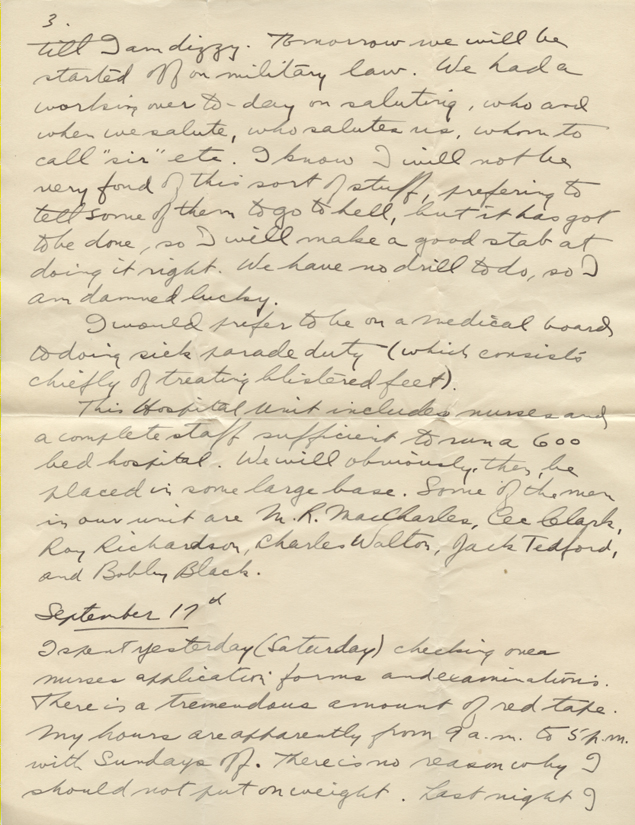 3.
till I am dizzy. Tomorrow we will be
started off on military law. We had a
working over to-day on saluting, who and
when we salute, who salutes us, whom to
call "sir" etc. I know I will not be
very fond of this sort of stuff, prefering to
tell some of them to go to hell, but it has got
to be done, so I will make a good stab at
doing it right. We have no drill to do, so I
am damned lucky.
I would prefer to be on a medical board
to doing sick parade duty (which consists
chiefly of treating blistered feet).
This Hospital Unit includes nurses and
a complete staff sufficient to run a 600
bed hospital. We will obviously, then, be
placed in some large base. Some of the men
in our unit are M.R. MacCharles, Cec Clark,
Roy Richardson, Charles Walton, Jack Tedford,
and Bobby Black.
September 17th
I spent yesterday (Saturday) checking over
nurses application forms and examinations.
There is a tremendous amount of red tape.
My hours are apparently from 9 a.m. to 5 p.m.
with Sundays off. There is no reason why I
should not put on weight. Last night I